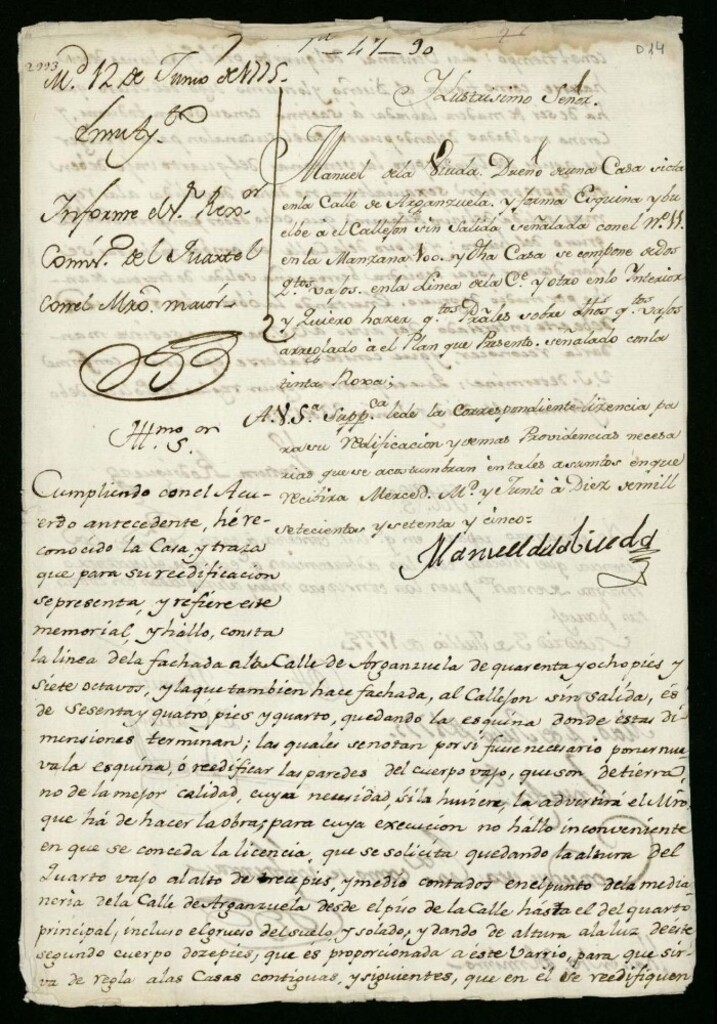 1ª-47-90
D14
2993
Md. 12 de Junio de 1775.
En su Aytº.
Informe el Sr. Rexor
Comisº. del Quartel
con el Mrô. maiôr
Ilustrisimo Señor.
Manuel de la Viuda. Dueño de una Casa sita
en la Calle de Arganzuela, y forma Esquina y bu
elbe à el Callejon sin Salida señalada con el Nº. 11.
en la Manzana 100. y dha Casa se compone de dos
qtos vajos. en la Linea de la Ce. y otro en lo Interior
y Quiero hazer qtos Prales sobre dhos qtos vajos
arreglado à el Plan que Presento. señalado con la
tinta Roxa;
A. V. S.a Suppca le de la Correspondiente lizencia pa
ra su redificacion y demas Providencias necesa
rias que se acatumbran en tales asumtos en que
recivira Merced. Md. y Junio à Diez de mill
setecientos y setenta y cinco=
Manuel de la Viuda
Illmo. Sor
Cumpliendo con el Acu-
erdo antecedente, hé re-
conocido la Casa, y traza
que para su reedificacion
se presenta, y refiere este
memorial, y hallo, consta
la linea de la fachada à la Calle de Arganzuela de quarenta y ocho pies y
siete octavos, y la que tambien hace fachada, al Callejon sin salida, és
de sesenta y quatro pies y quarto, quedando la esquina donde estas di-
mensiones terminan; las quales se notan por si fuse necesario poner nue-
va la esquina, ó reedificar las paredes del cuerpo vajo, que son de tierra,
no de la mejor calidad, cuya necesidad, si la huviere, la advertirá el Mrô.
que há de hacer la obra; para cuya execucion no hállo inconveniente
en que se conceda la licencia, que se solicita quedando la altura del
Quarto vajo al alto de trece pies, y medio contados en el punto de la media
neria de la Calle de Arganzuela desde el piso de la Calle hásta el del quarto
principal, incluso el grueso del suelo, y solado, y dando de altura a la luz de este
segundo cuerpo doze pies, que és proporcionada a este Varrio, para que sir-
va de regla a las Casas contiguas, y siguientes, que en él se reedifiquen